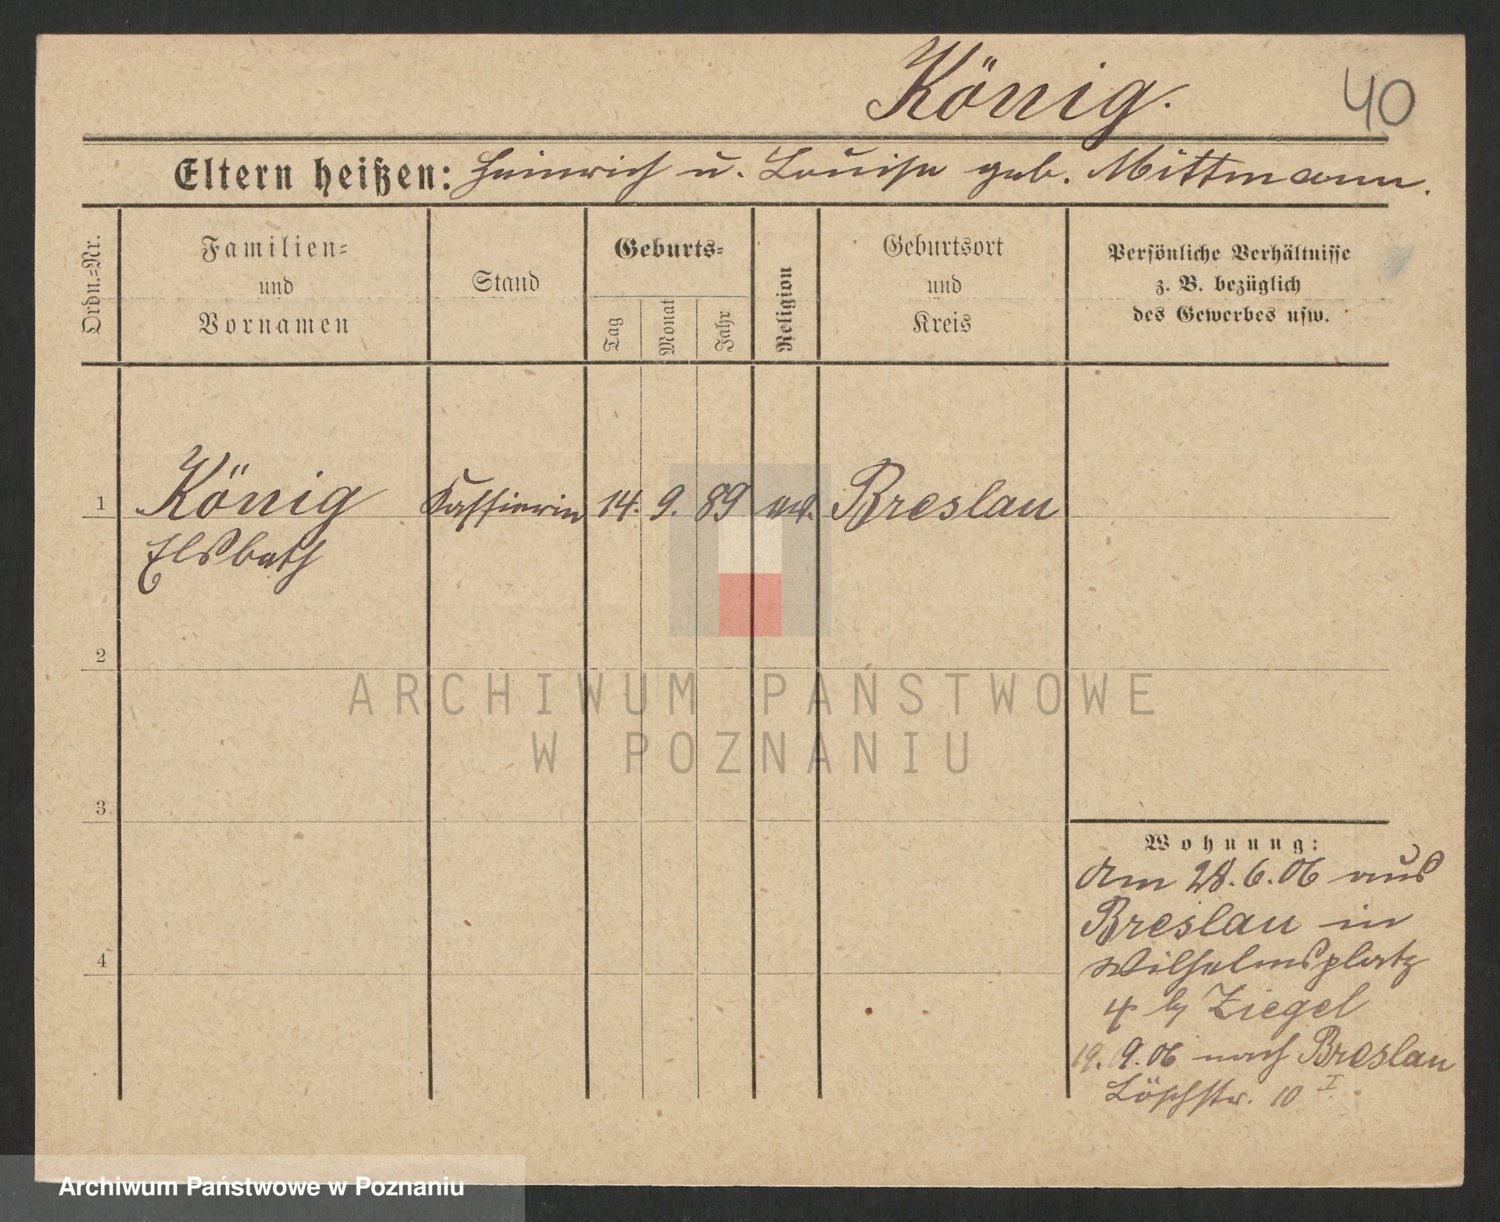 König.
40
Eltern heißen: Heinrich u. Louise geb. Mittmann.
Ordn.=Nr.
Familien=
und
Vornamen
Stand
Geburts=
Tag
Monat
Jahr
Religion
Geburtsort
und
Kreis
Persönliche Verhältnisse
z. B. bezüglich
des Gewerbes usw.
1 König Kassierin 14. 9. 89 ev. Breslau
Elsbeth
2
3
4
Wohnung:
Am 28.6.06 aus
Breslau in
Wilhelmsplatz
4 by Ziegel
19.9.06 nach Breslau
Löschstr. 10 I
ARCHIWUM PAŃSTWOWE
W POZNANIU
Archiwum Państwowe w Poznaniu